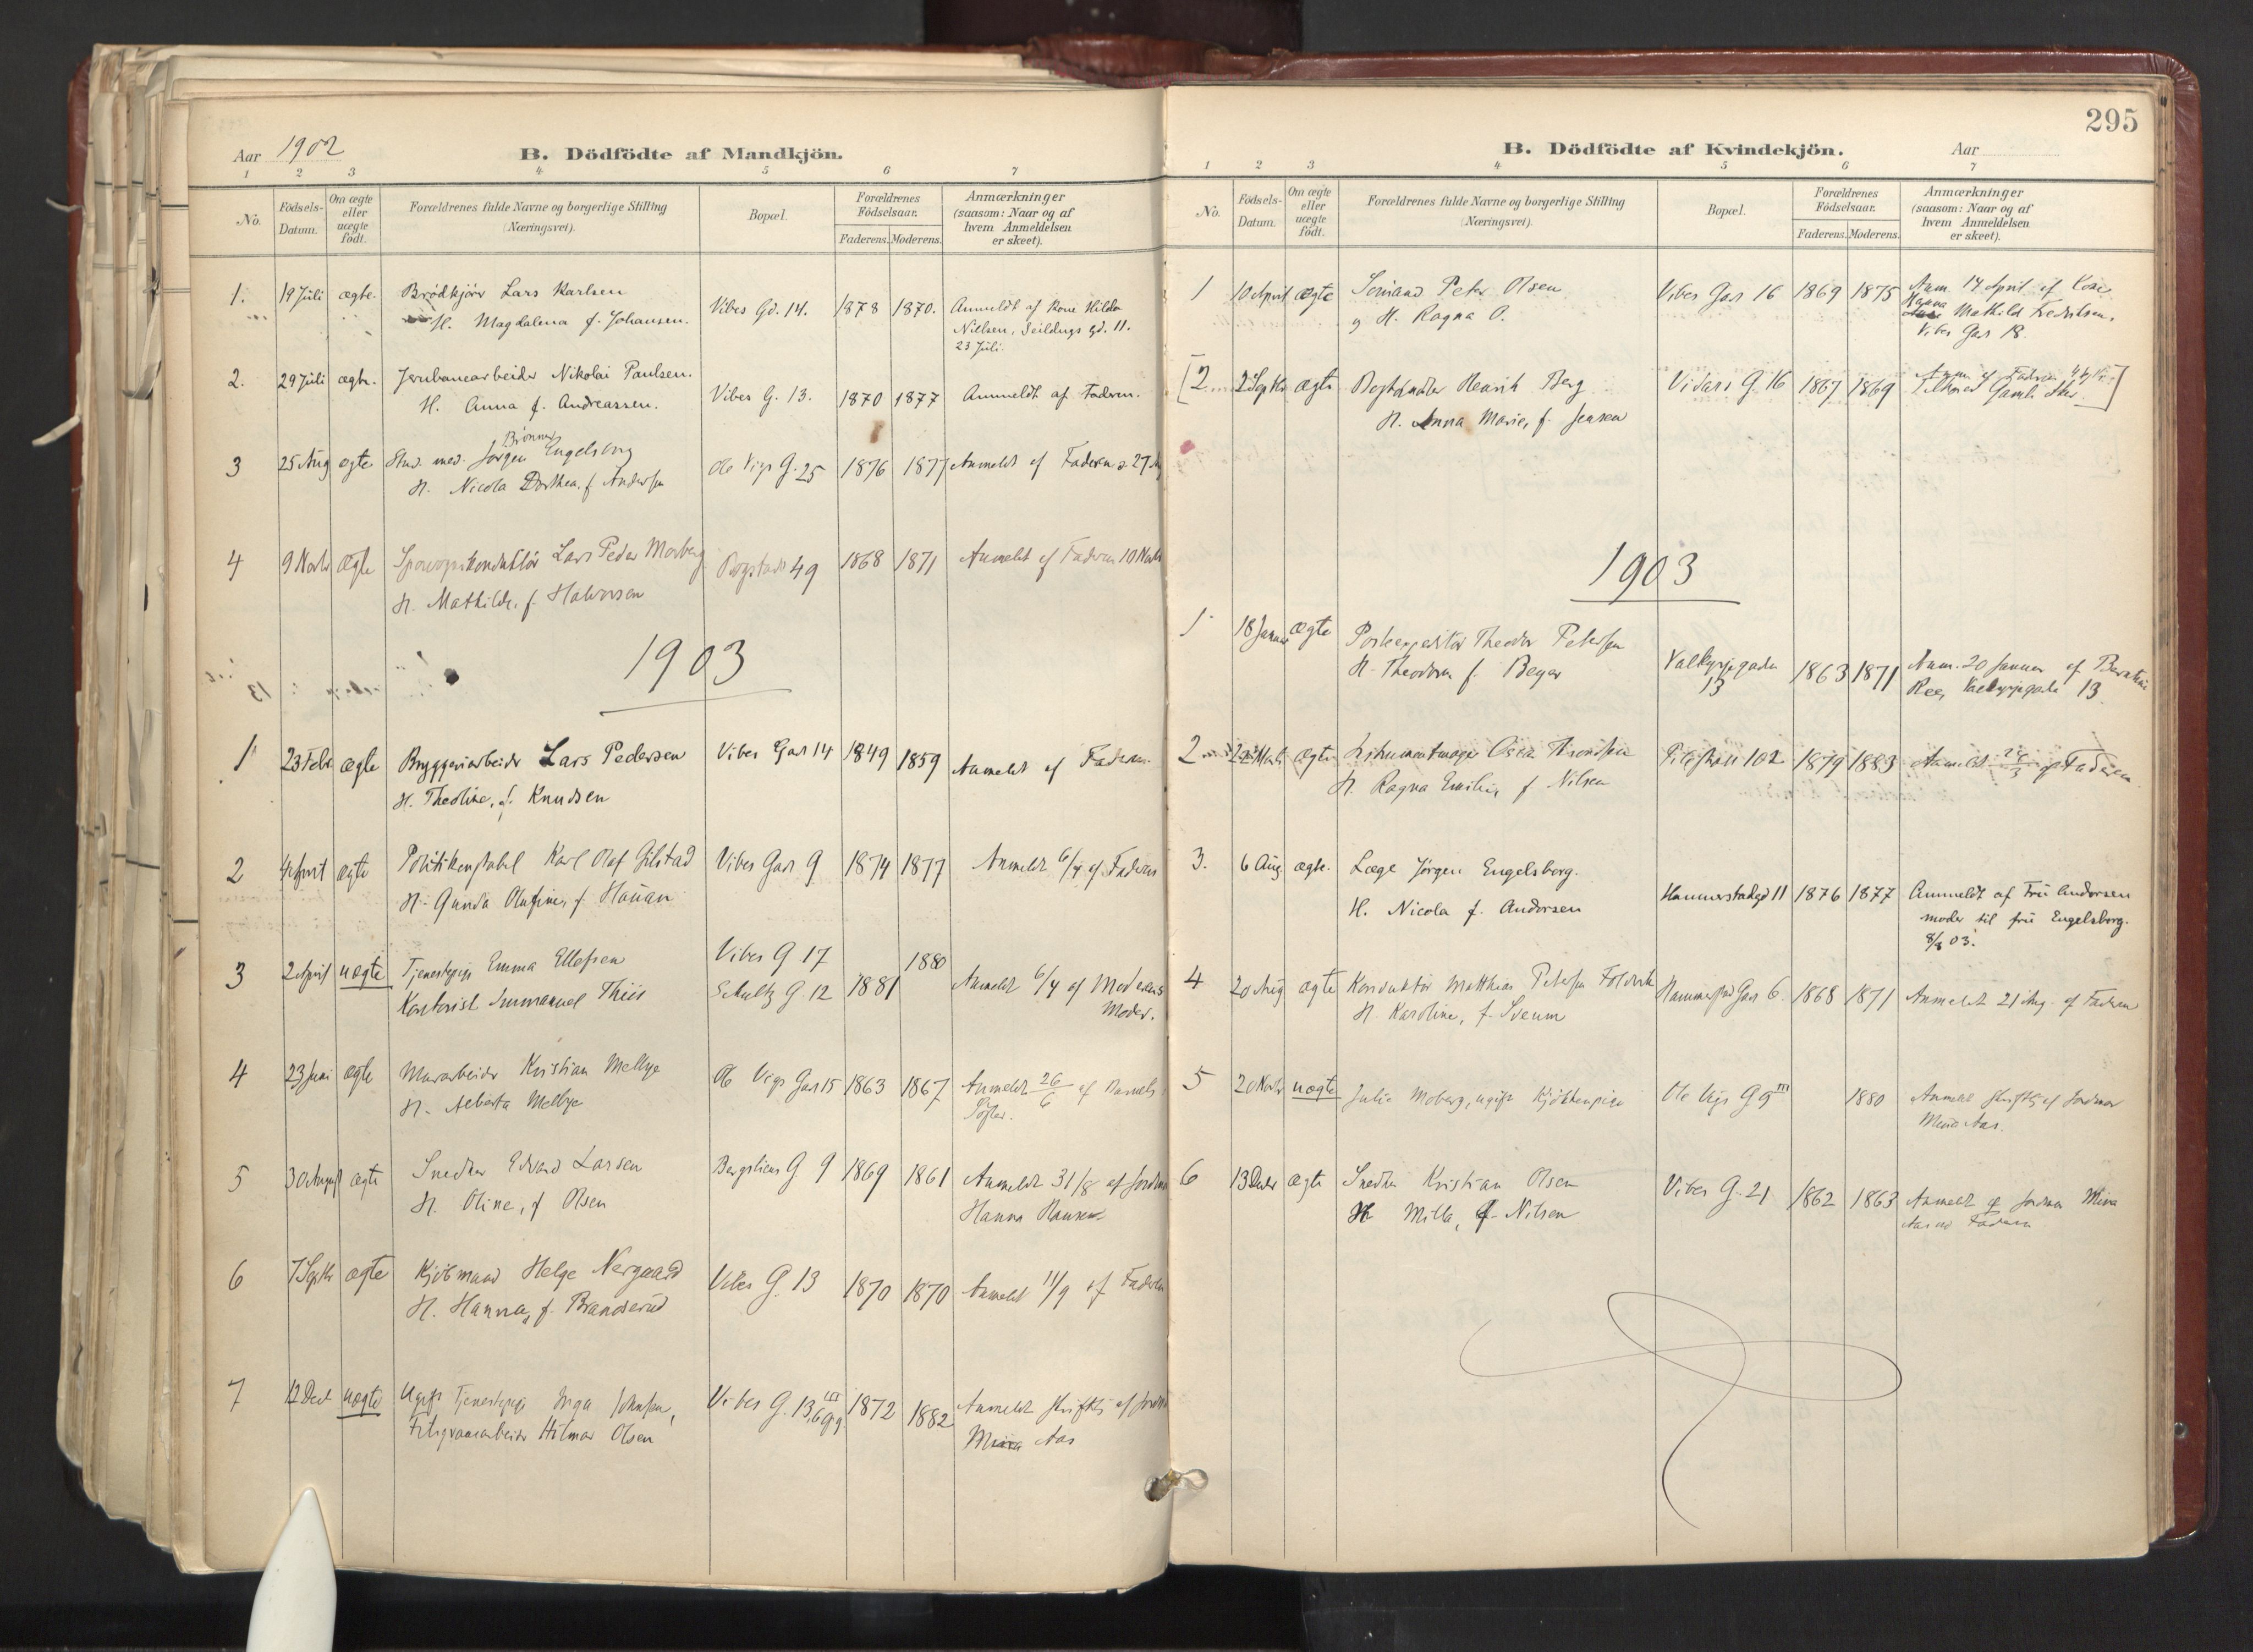 Aar 1902
B. Dödfödte af Mandkjön.
1 2 3 4 5 6 7
No.
Födsels-Datum.
Om ægte eller uægte födt.
Forældrenes fulde Navne og borgerlige Stilling (Næringsvei).
Bopæl.
Forældrenes Födselsaar.
Faderens. Moderens.
Anmærkninger (saasom: Naar og af hvem Anmeldelsen er skeet).
1. 19 Juli ægte. Brödkjörer Lars Karlsen Vibes Gd. 14. 1878 1870. Anmeldt af Kone Hilda
H. Magdalena f. Johansen. Nielsen, Seildugs gd. 11.
23 Juli.
2. 29 Juli ægte. Jernbanearbeider Nikolai Paulsen. Vibes G. 13. 1870 1877 Anmeldt af Faderen.
H. Anna f. Andreassen.
Brönner
3 25 Aug ægte Stud. med. Jørgen Engelsborg Ole Vigs G. 25 1876 1877 Anmeldt af Faderen d. 27
H. Nicola Dorthea f. Andersen
4 9 Novbr ægte Sporvognskonduktör Lars Peder Morberg 49 1868 1871 Anmeldt af Faderen 10 Novbr
H. Mathilde, f. Halvorsen
1903
1 23 Febr ægte Bryggeriarbeider Lars Pedersen Vibes Gad 14 1849 1859 Anmeldt af Faderen
H. Theoline, f. Knudsen
2 4 April ægte Politikonstabel Karl Olaf Gilstad Vibes Gad 9 1874 1877 Anmeldt 6/4 af Faderen
H. Gunda Olufine, f. Hauan
3 2 April uægte Tjenestepige Emma Ellefsen Vibes G 17 1880
Kontorist Immanuel Thiis Schultz G. 12 1881 Anmeldt 6/4 af Moderens
Moder.
4 23 Juni ægte Murarbeider Kristian Melbye Ole Vigs Gad 15 1863 1867 Anmeldt 26/6 af Barnets
H. Alberta Melbye
5 30 August ægte Snedker Edvard Larsen Bergsliens G 9 1869 1861 Anmeldt 31/8 af Jordmor
H. Oline, f Olsen Hanna Hansen
6 7 Septbr ægte Kjöbmand Helge Nergaard Vibes G. 13 1870 1870 Anmeldt 11/9 af Faderen
H. Hanna, f. Brandserud
7 12 Decb uægte Ugift Tjenestepige Inga Johnsen, Vibes G. 13 1872 1882 Anmeldt skriftlig af Jordm
Filigransarbeider Hilmar Olsen Mina Aas
295
B. Dödfödte af Kvindekjön.
Aar
1 2 3 4 5 6 7
No.
Födsels-Datum.
Om ægte eller uægte födt.
Forældrenes fulde Navne og borgerlige Stilling (Næringsvei).
Bopæl.
Forældrenes Födselsaar.
Faderens. Moderens.
Anmærkninger (saasom: Naar og af hvem Anmeldelsen er skeet).
1 10 April ægte Sömand Peter Olsen Vibes Gad 16 1869 1875 Anm. 14 April af Kone
og H. Ragna O. Hanna Mathild Fredriksen,
Vibes Gad 18
[2 2 Septbr ægte Henrik Berg Vidars G 16 1867 1869 Anm. af Faderen
H. Anna Marie, f. Jensen Tilhörer Gamle Aker]
1903
1 18 Januar ægte Postexpeditör Theodor Petersen Valkyrjegaden 13 1863 1871 Anm. 20 Januar af
H. Theodora f. Beyer Valkyrjegade 13
2 Marts ægte Instrumentmager Oscar Pilestræde 102 1879 1883 Anmeldt af Faderen
H. Ragna Emilie, f Nilsen
3. 6 Aug. ægte. Læge Jörgen Engelsborg.
H. Nicola f. Andersen Hammerstadgd 11 1876 1877 Anmeldt af Fru Andersen
moder til fru Engelsborg.
8/8 03.
4 20 Aug ægte Konduktör Matthias Petersen Hammerstad Gad 6. 1868 1871 Anmeldt 21 Aug. af Faderen
H. Karoline, f. Sveum
5 20 Novbr uægte Julie Moberg, ugift Kjökkenpige Ole Vigs G 9 III 1880 Anmeldt skriftlig af Jordmor
Mina Aas.
6 13 Decbr ægte Snedker Kristian Olsen Vibes G. 21 1862 1863 Anmeldt af Jordmor Mina
H Milla, f. Nilsen Aas